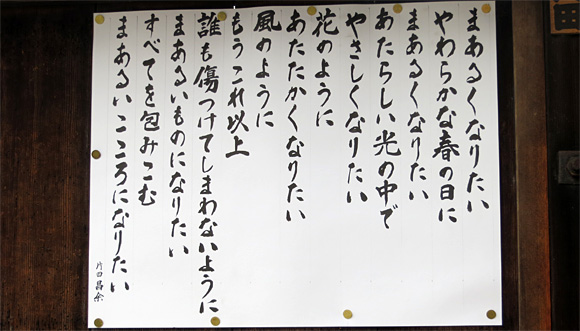 まあるくなりたい
やわらかな春の日に
まあるくなりたい
あたらしい光の中で
やさしくなりたい
花のように
あたたかくなりたい
風のように
もうこれ以上
誰も傷つけてしまわないように
まあるいものになりたい
すべてを包みこむ
まあるいこころになりたい